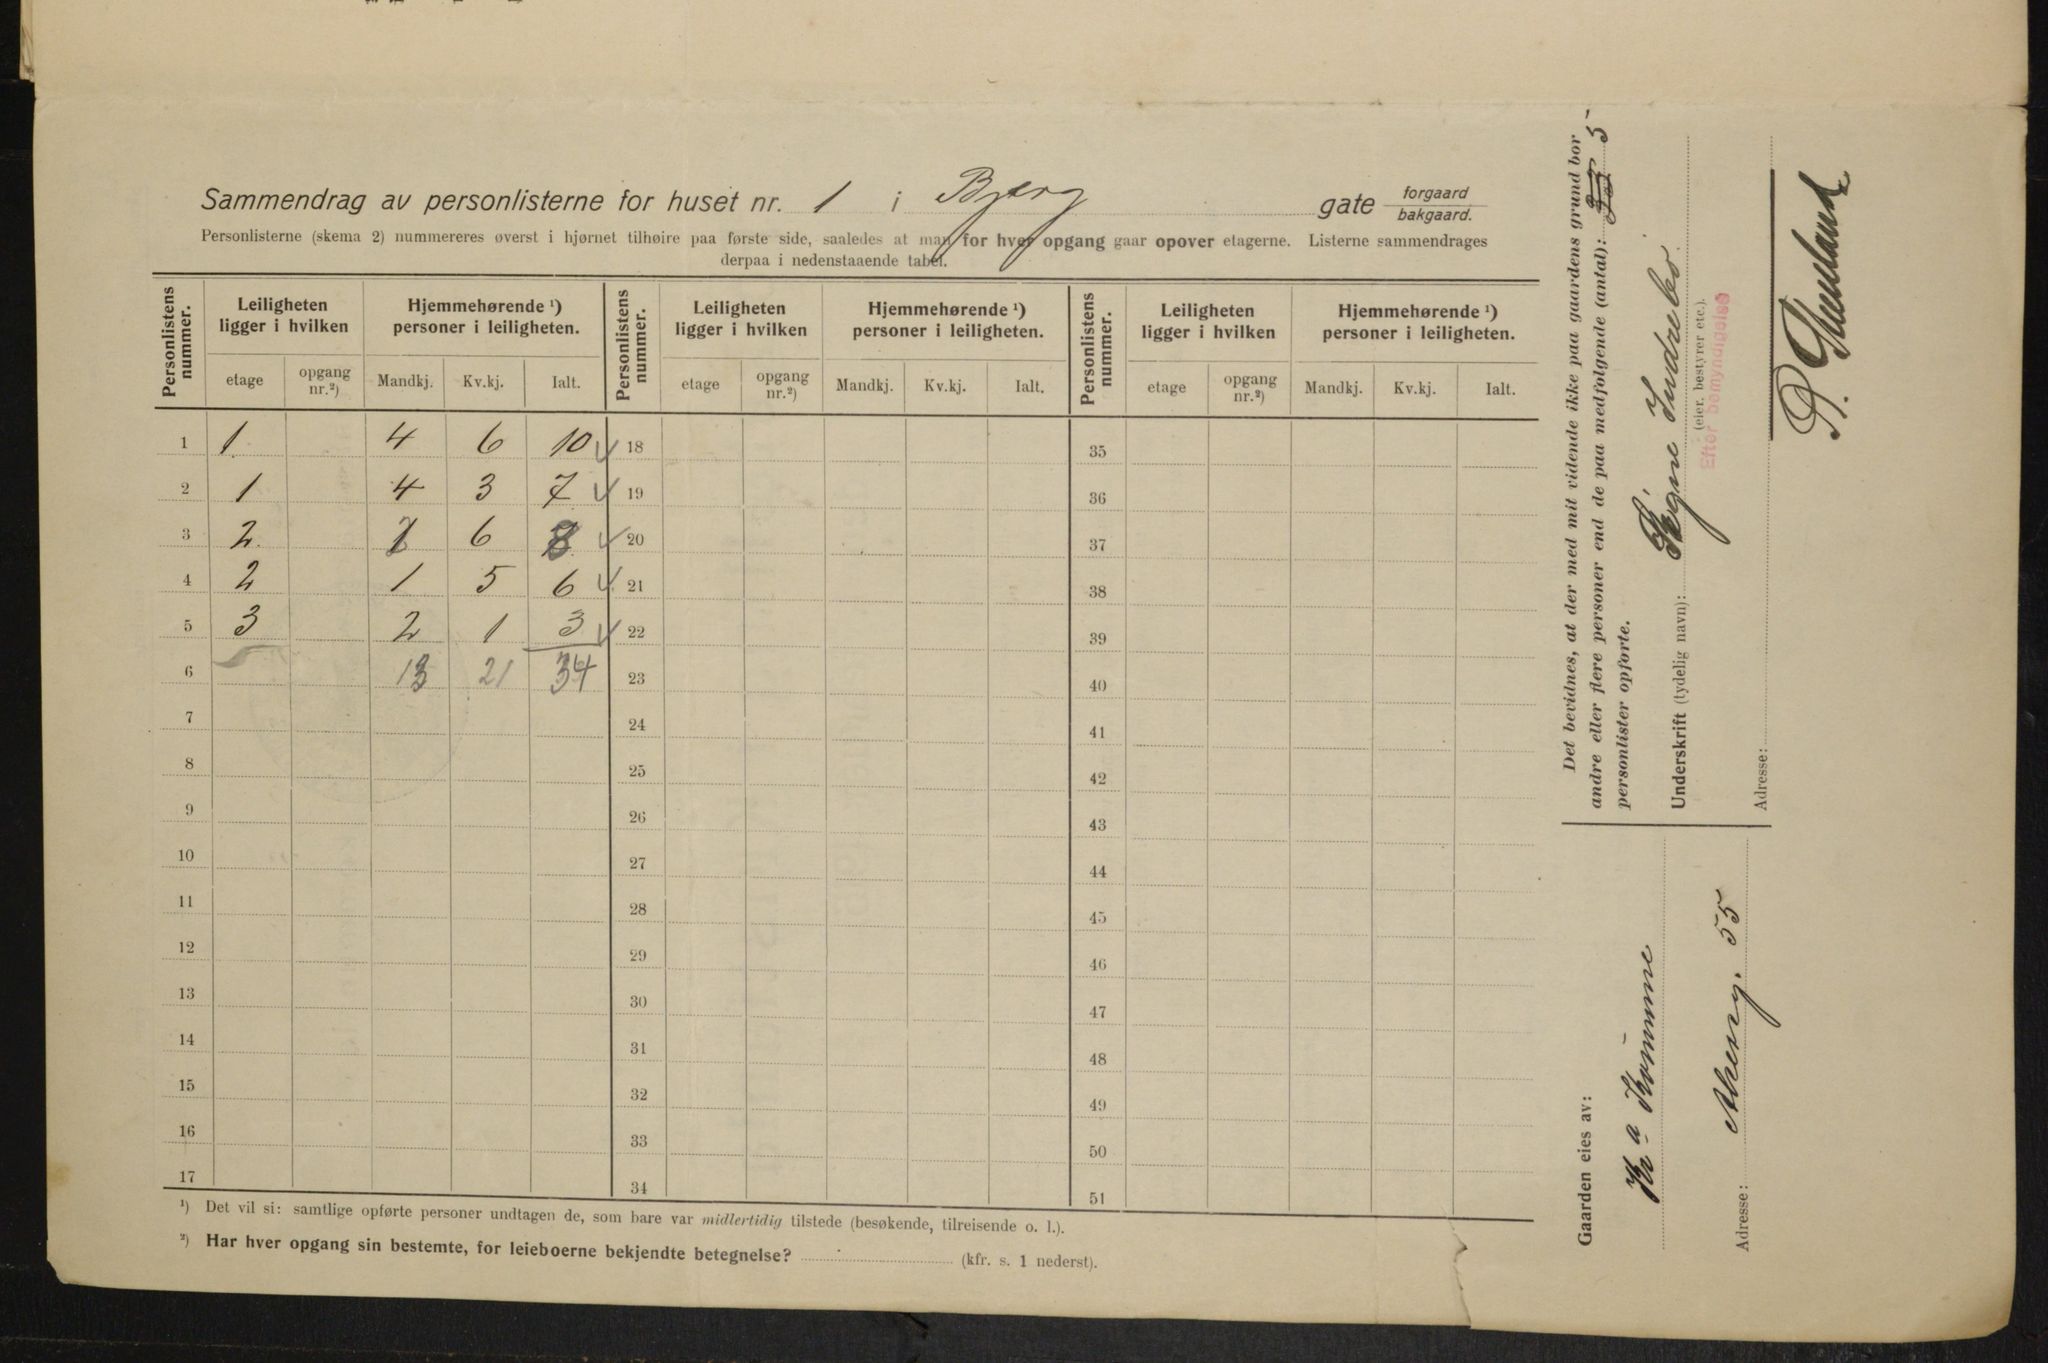 Sammendrag av personlisterne for huset nr. 1 i Bjerg gate forgaard bakgaard.
Personlisterne (skema 2) nummereres øverst i hjørnet tilhøire paa første side, saaledes at man for hver opgang gaar opover etagerne. Listerne sammendrages
derpaa i nedenstaaende tabel.
Personlistens nummer. Leiligheten ligger i hvilken Hjemmehørende ¹) personer i leiligheten. Personlistens nummer. Leiligheten ligger i hvilken Hjemmehørende ¹) personer i leiligheten. Personlistens nummer. Leiligheten ligger i hvilken Hjemmehørende ¹) personer i leiligheten.
etage opgang nr.²) Mandkj. Kv.kj. Ialt. etage opgang nr.²) Mandkj. Kv.kj. Ialt. etage opgang nr.²) Mandkj. Kv.kj. Ialt.
1 1 4 6 10 18 35
2 1 4 3 7 19 36
3 2 2 6 8 20 37
4 2 1 5 6 21 38
5 3 2 1 3 22 39
6 13 21 34 23 40
7 24 41
8 25 42
9 26 43
10 27 44
11 28 45
12 29 46
13 30 47
14 31 48
15 32 49
16 33 50
17 34 51
¹) Det vil si: samtlige opførte personer undtagen de, som bare var midlertidig tilstede (besøkende, tilreisende o. l.).
²) Har hver opgang sin bestemte, for leieboerne bekjendte betegnelse? (kfr. s. 1 nederst).
Det bevidnes, at der med mit vidende ikke paa gaardens grund bor
andre eller flere personer end de paa medfolgende (antal): 5
personlister opforte.
Underskrift (tydelig navn): Signe Indrebö.
(eier, bestyrer etc.).
Efter bemyndigelse
Adresse:
Gaarden eies av:
Kr.a Kommune
Adresse: Akersg. 55